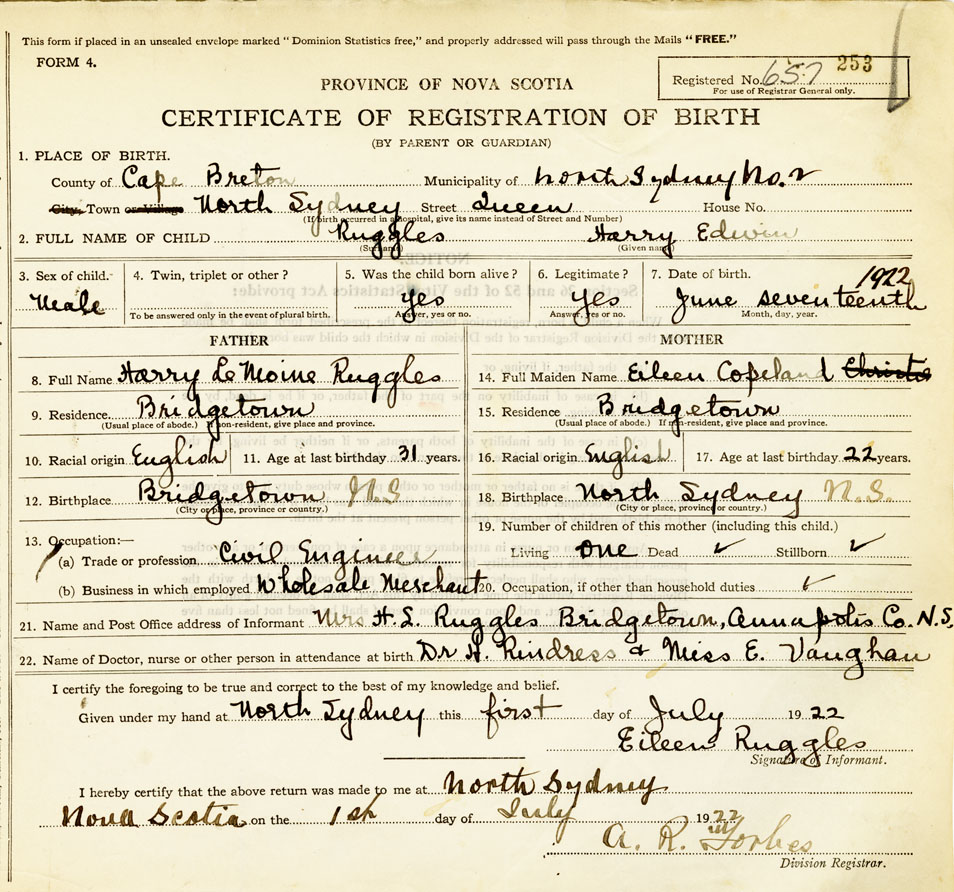 This form if placed in an unsealed envelope marked "Dominion Statistics free," and properly addressed will pass through the Mails "FREE."
FORM 4.
253
Registered No. 657
For use of Registrar General only.
PROVINCE OF NOVA SCOTIA
CERTIFICATE OF REGISTRATION OF BIRTH
(BY PARENT OR GUARDIAN)
1. PLACE OF BIRTH.
County of Cape Breton Municipality of North Sydney No. 2
City, Town or Village North Sydney Street Queen House No.
(If birth occurred in a hospital, give its name instead of Street and Number)
2. FULL NAME OF CHILD Ruggles Harry Edwin
(Surname) (Given name)
3. Sex of child. 4. Twin, triplet or other? 5. Was the child born alive? 6. Legitimate? 7. Date of birth. 1922
Male yes yes June seventeenth
To be answered only in the event of plural birth. Answer, yes or no. Answer, yes or no. Month, day, year.
FATHER MOTHER
8. Full Name Harry LeMoine Ruggles 14. Full Maiden Name Eileen Copeland Christie
9. Residence. Bridgetown 15. Residence Bridgetown
(Usual place of abode.) If non-resident, give place and province. (Usual place of abode.) If non-resident, give place and province.
10. Racial origin English 11. Age at last birthday 31 years. 16. Racial origin English 17. Age at last birthday 22 years.
12. Birthplace Bridgetown N.S 18. Birthplace North Sydney N.S.
(City or place, province or country.) (City or place, province or country.)
13. Occupation:— 19. Number of children of this mother (including this child.)
(a) Trade or profession Civil Engineer Living one Dead ✓ Stillborn ✓
(b) Business in which employed Wholesale Merchant 20. Occupation, if other than household duties ✓
21. Name and Post Office address of Informant Mrs H. L. Ruggles Bridgetown, Annapolis Co. N.S.
22. Name of Doctor, nurse or other person in attendance at birth Dr H. Rindress & Miss E. Vaughan
I certify the foregoing to be true and correct to the best of my knowledge and belief.
Given under my hand at North Sydney this first day of July 1922
Eileen Ruggles
Signature of Informant.
I hereby certify that the above return was made to me at North Sydney
Nova Scotia on the 1st day of July 1922
A. R. Forbes
Division Registrar.